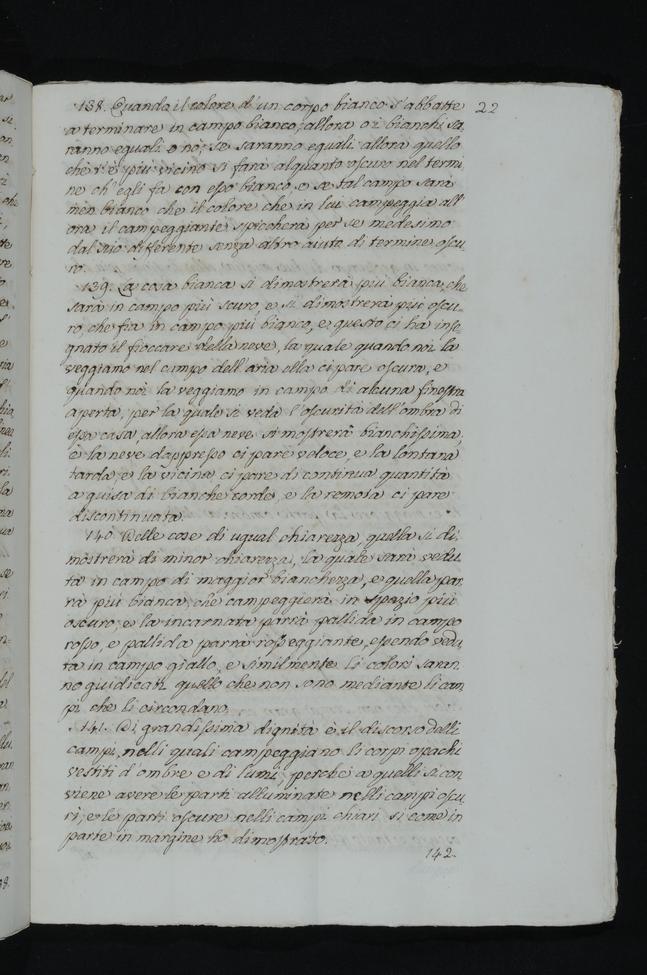 138. Quando il colore d'un corpo bianco s'abbatte 22
a terminare in campo bianco, allora o i bianchi sa,
ranno eguali o no; se saranno eguali allora quello
che t'è più vicino si farà alquanto oscuro nel termi
ne ch'egli fa con esso bianco, e se tal campo sarà
men bianco che il colore che in lui campeggia all'
ora il campeggiante spiccherà per se medesimo
dal suo differente senza altro aiuto di termine oscu
ro.
139. La cosa bianca si dimostrerà più bianca, che
sarà in campo più scuro, e si dimostrerà più oscu-
ro, che fia in campo più bianco, e questo ci ha inse
gnato il fioccare della neve, la quale quando noi la
veggiamo nel campo dell'aria ella ci pare oscura, e
quando noi la veggiamo in campo di alcuna finestra
aperta, per la quale si veda l'oscurità dell'ombra di
essa casa, allora essa neve si mostrerà bianchissima,
e la neve d'appresso ci pare veloce, e la lontana
tarda, e la vicina ci pare di continua quantità
a guisa di bianche corde, e la remota ci pare
discontinuata.
140. Delle cose di ugual chiarezza, quella si di,
mostrerà di minor chiarezza, la quale sarà vedu,
ta in campo di maggior bianchezza, e quella par,
rà più bianca, che campeggierà in spazio più
oscuro, e la incarnata parrà pallida in campo
rosso, e pallida parrà rosseggiante, essendo vedu
ta in campo giallo, e similmente li colori saran,
no giudicati quello che non sono mediante li cam
pi che li circondano.
141. Di grandissima dignità è il discorso delli
campi, nelli quali campeggiano li corpi opachi
vestiti d'ombre e di lumi, perchè a quelli si con
viene avere le parti alluminate nelli campi oscu
ri, e le parti oscure nelli campi chiari si come in
parte in margine ho dimostrato.
142.